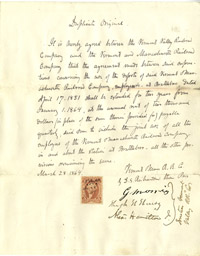 Duplicate Original
It is hereby agreed between the Vermont Valley Railroad
Company and the Vermont and Massachusetts Railroad
Company that the agreement made between said corpo-
rations concerning the use of the depots of said Vermont & Mass-
achusetts Railroad Company, employees, at Brattleboro dated
April 17, 1851 shall be extended for two years from
January 1, 1869, at the annual rent of two thousand
dollars in place of the sum therein provided for payable
quarterly, said sum to include the joint use of all the
employees of the Vermont & Massachusetts Railroad Company
in and about the station at Brattleboro, all the other pro-
visions remaining the same.
March 28, 1869
Hugh H. Henry